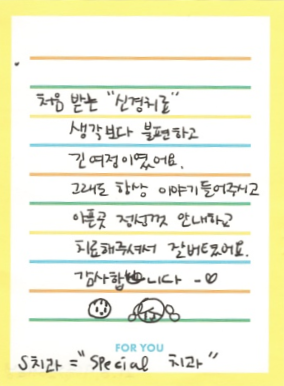 처음 받는 "신경치료"
생각보다 불편하고
긴여정이였어요.
그래도 항상 이야기들어주시고
아픈곳 정성껏 안내하고
치료해주셔서 잘버텼어요.
감사합니다 -♡
FOR YOU
S치과 = "Special 치과"